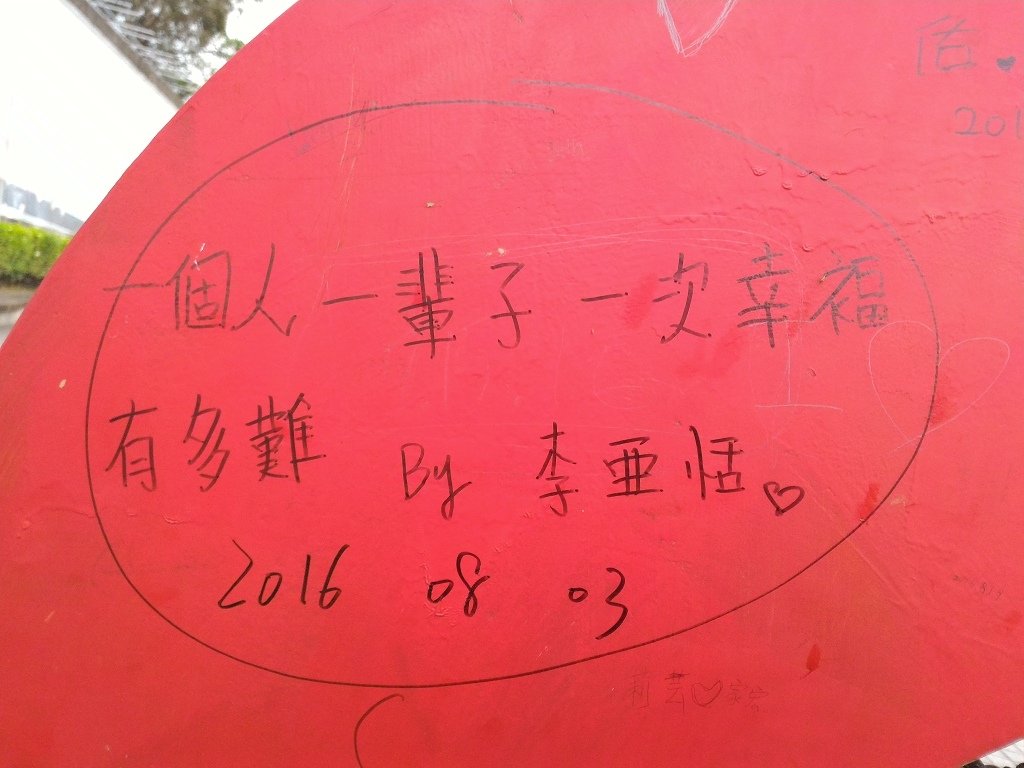 佑
201
一個人一輩子一次幸福
有多難 By 李亞恬
2016 08 03